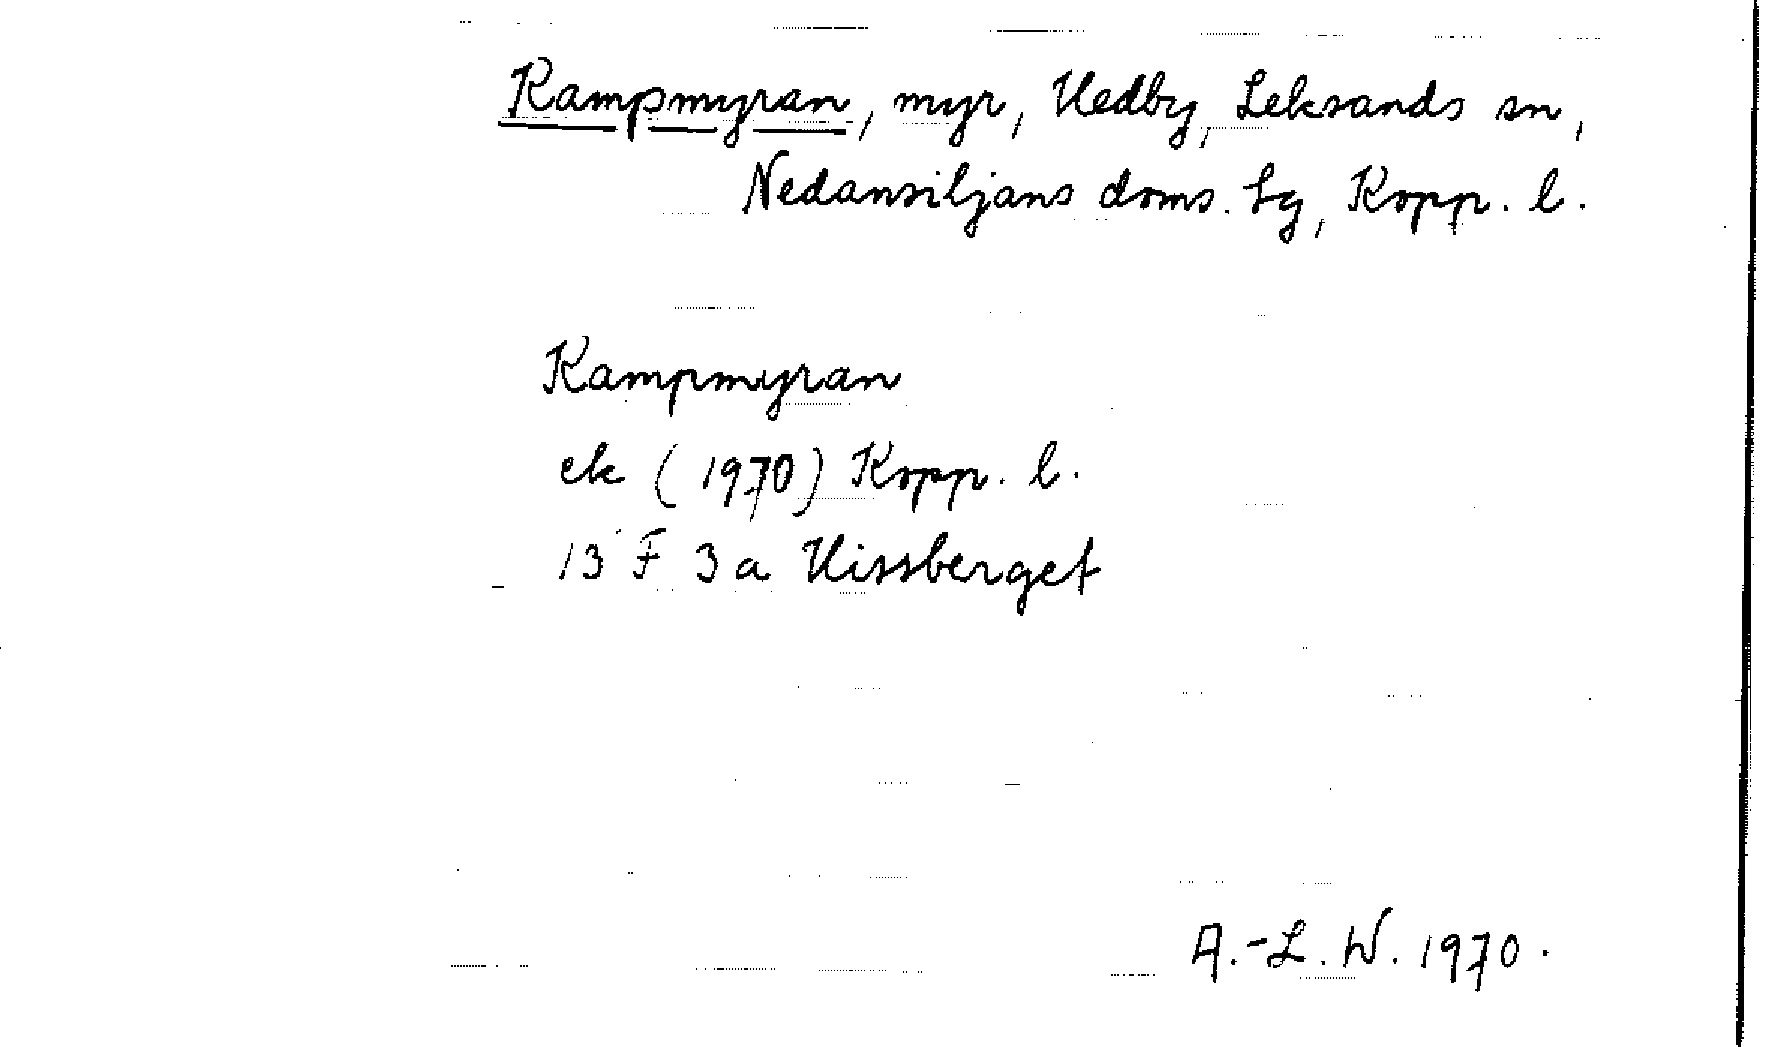 Kampmyran, myr, Hedby, Leksands sn,
Nedansiljans doms. lg, Kopp. l.
Kampmyran
ek (1970) Kopp. l.
13 F 3 a Hissberget
A.-L. W. 1970.